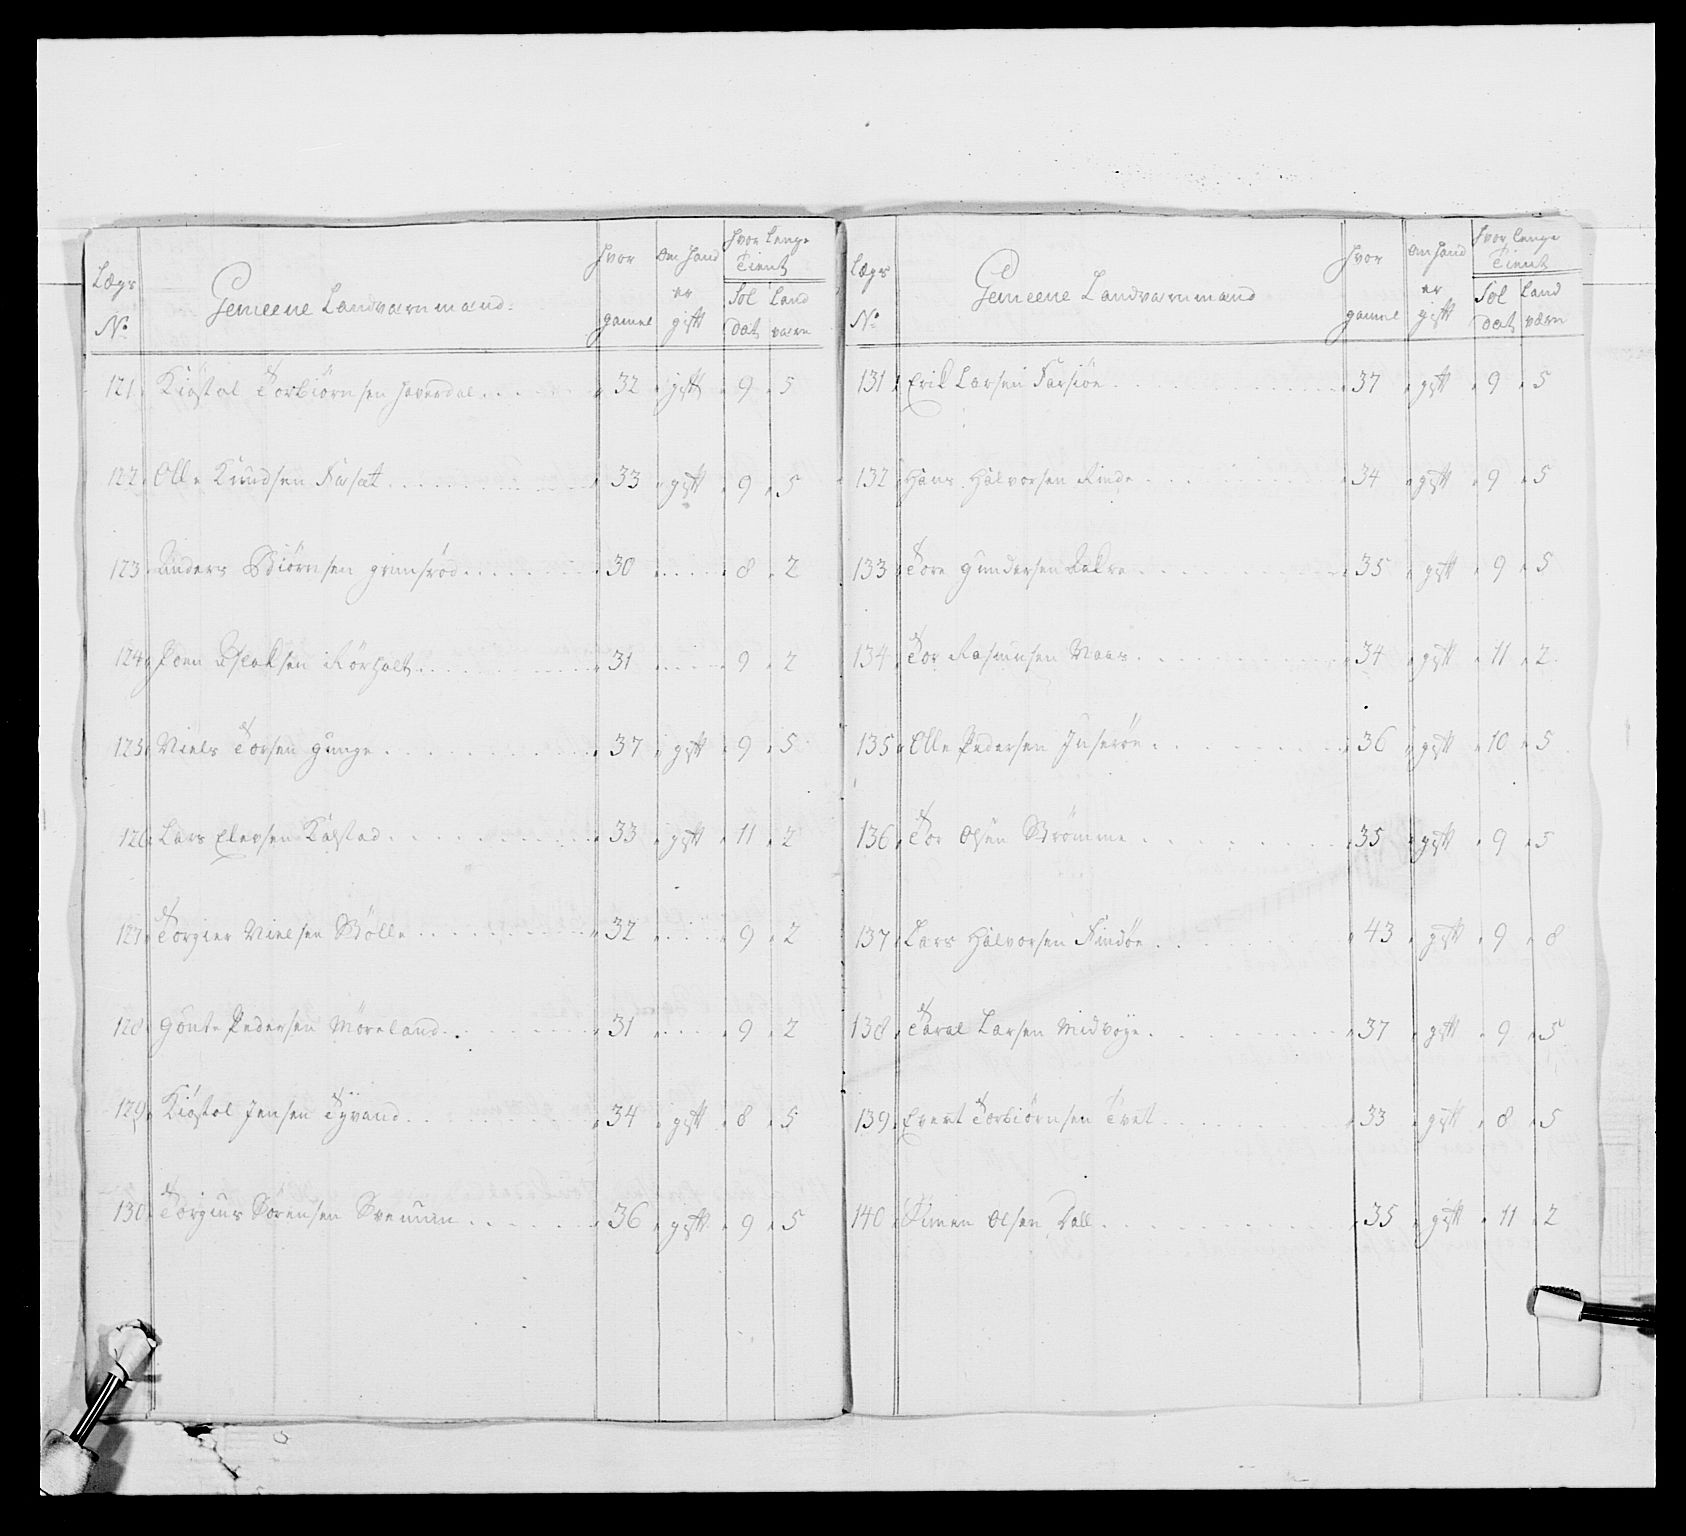 Lægs No Gemeene Landværnmænd: hvor gamel Om hand er gift hvor lenge Tient Sol dat Land værn
121 Kiøstol Torbiørnsen Haverdal 32 gift 9 5
122 Olle Knudsen Farsæt 33 gift 9 5
123 Anders Biørnsen grimsrød 30 8 2
124 Poen Aslaksen Rørholt 31 9 2
125 Niels Torsen gunge 37 gift 9 5
126 Lars Elevsen Kaastad 33 gift 11 2
127 Torgier Nielsen Bølle 32 9 2
128 Gonte Pedersen Møreland 31 9 2
129 Kiøstol Jensen Tyvand 34 gift 8 5
130 Torgius Sørensen Svenum 36 gift 9 5
Lægs No Gemeene Landværnmænd hvor gamel Om hand er gift hvor lenge Tient Sol dat Land værn
131 Erik Larsen Farsiøe 37 gift 9 5
132 Hans Halvorsen Rinde 34 gift 9 5
133 Tore Gundersen Aakre 35 gift 9 5
134 Tor Rasmusen Naas 34 gift 11 2
135 Olle Pedersen Juserøe 36 gift 10 5
136 Tor Olsen Strømme 35 gift 9 5
137 Lars Halvorsen Findøe 43 gift 9 8
138 Taral Larsen Midbøye 37 gift 9 5
139 Evert Torbiørnsen Tvet 33 gift 8 5
140 Simen Olsen Dall 35 gift 11 2